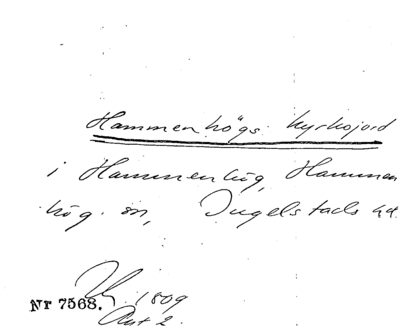 Hammenhögs kyrkojord
i Hammenhög, Hammen
hög. sn, Ingelstads hd.
1809
Nr 7568.
Akt 2.